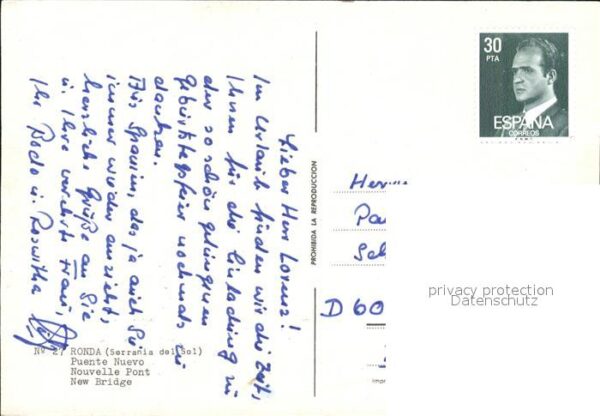 Lieber Herr Lorenz!
Im Urlaub finden wir die Zeit,
Ihnen für die Einladung zu
der so schön gelungenen
Geburtstagsfeier nochmals zu
danken.
Aus Spanien, das ja auch Sie
immer wieder anzieht,
herzliche Grüße an Sie
u. Ihre verehrte Frau,
Ihr Bodo u. Roswitha
Nº 27 RONDA (Serrania del Sol)
Puente Nuevo
Nouvelle Pont
New Bridge
PROHIBIDA LA REPRODUCCION
30
PTA
ESPAÑA
CORREOS
D 60
privacy protection
Datenschutz